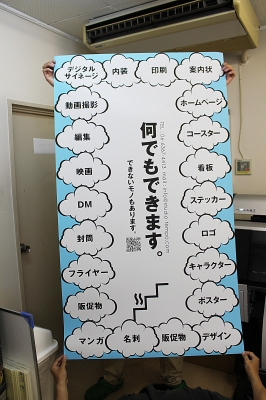 デジタル
サイネージ
内装
印刷
案内状
動画撮影
ホームページ
編集
コースター
映画
看板
DM
ステッカー
封筒
ロゴ
フライヤー
キャラクター
販促物
ポスター
マンガ
名刺
販促物
デザイン
何でもできます。
できないモノもあります。